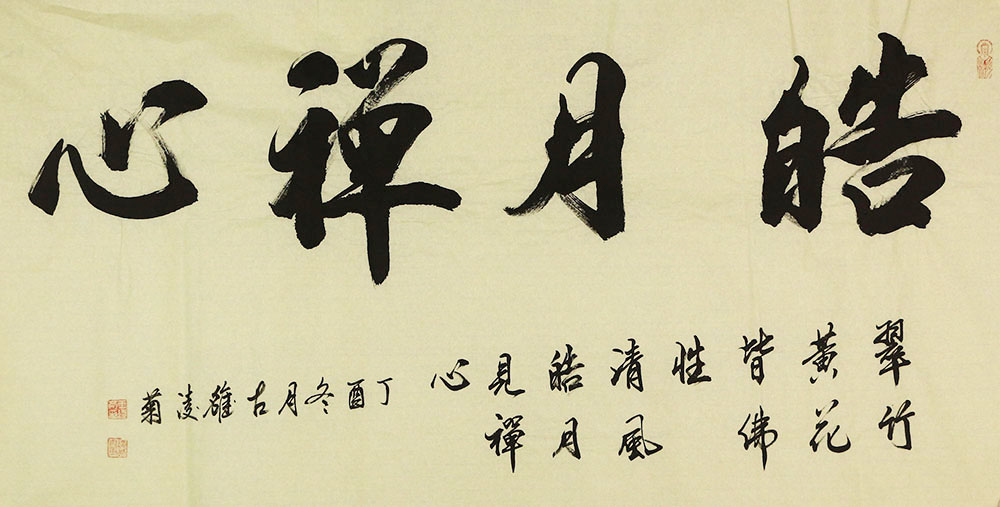 皓月禪心
翠竹
黃花
皆佛
性
清風
皓月
見禪
心
丁酉冬月古雒凌菊